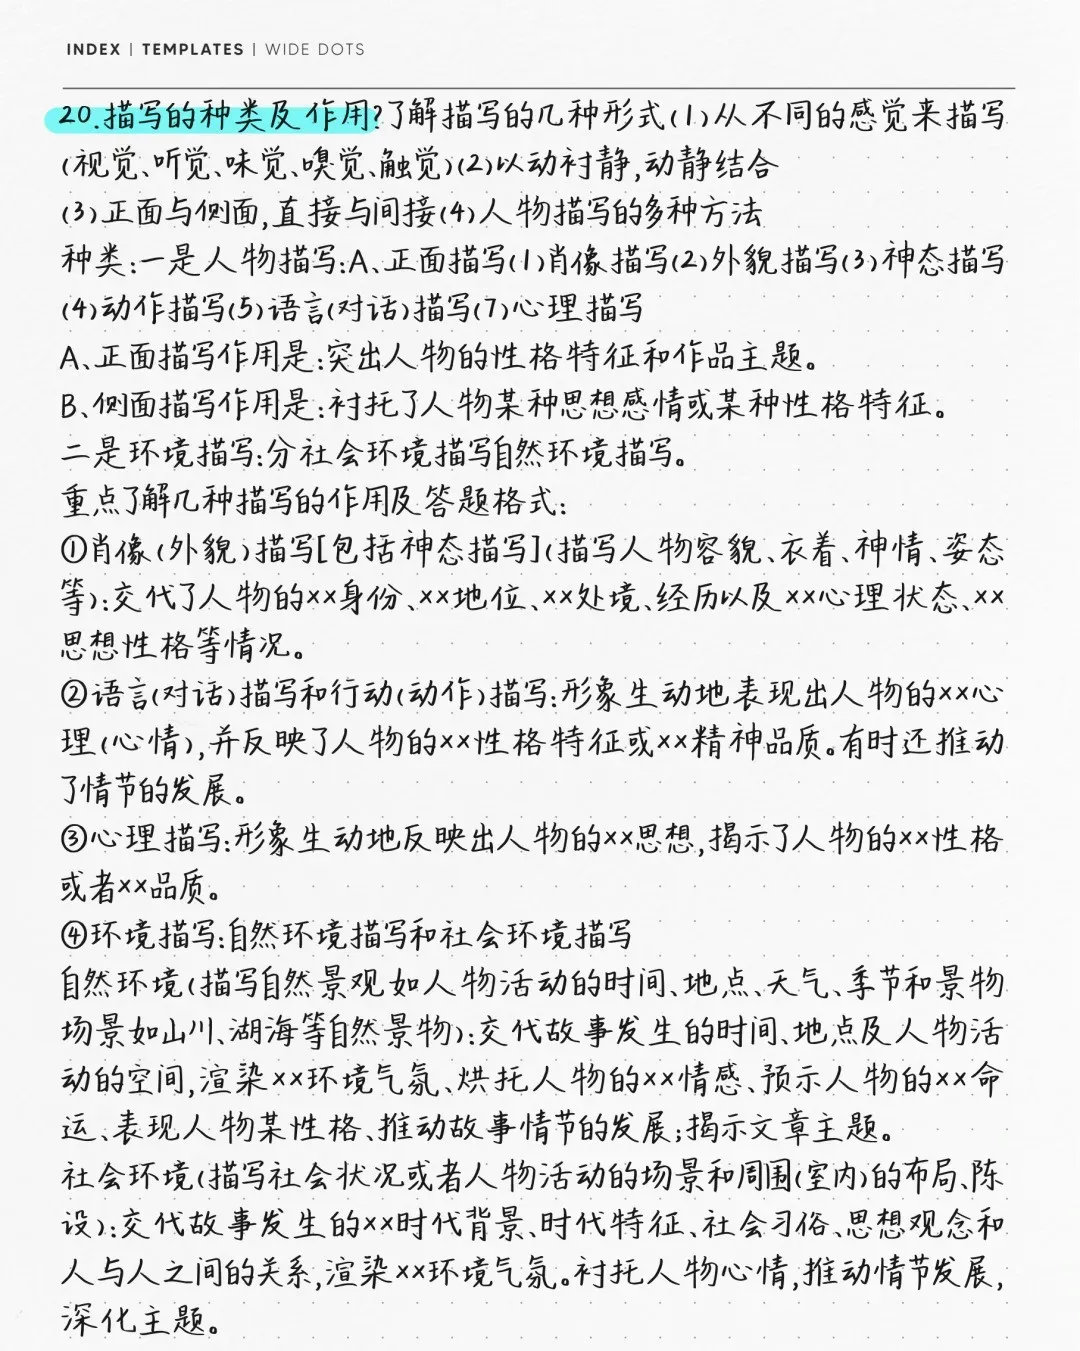 INDEX | TEMPLATES | WIDE DOTS
20.描写的种类及作用?了解描写的几种形式(1)从不同的感觉来描写
(视觉、听觉、味觉、嗅觉、触觉)(2)以动衬静,动静结合
(3)正面与侧面,直接与间接(4)人物描写的多种方法
种类:一是人物描写:A、正面描写(1)肖像描写(2)外貌描写(3)神态描写
(4)动作描写(5)语言(对话)描写(7)心理描写
A、正面描写作用是:突出人物的性格特征和作品主题。
B、侧面描写作用是:衬托了人物某种思想感情或某种性格特征。
二是环境描写:分社会环境描写自然环境描写。
重点了解几种描写的作用及答题格式:
①肖像(外貌)描写[包括神态描写](描写人物容貌、衣着、神情、姿态
等):交代了人物的××身份、××地位、××处境、经历以及××心理状态、××
思想性格等情况。
②语言(对话)描写和行动(动作)描写:形象生动地表现出人物的××心
理(心情),并反映了人物的××性格特征或××精神品质。有时还推动
了情节的发展。
③心理描写:形象生动地反映出人物的××思想,揭示了人物的××性格
或者××品质。
④环境描写:自然环境描写和社会环境描写
自然环境(描写自然景观如人物活动的时间、地点、天气、季节和景物
场景如山川、湖海等自然景物):交代故事发生的时间、地点及人物活
动的空间,渲染××环境气氛、烘托人物的××情感、预示人物的××命
运、表现人物某性格、推动故事情节的发展;揭示文章主题。
社会环境(描写社会状况或者人物活动的场景和周围(室内)的布局、陈
设):交代故事发生的××时代背景、时代特征、社会习俗、思想观念和
人与人之间的关系,渲染××环境气氛。衬托人物心情,推动情节发展,
深化主题。